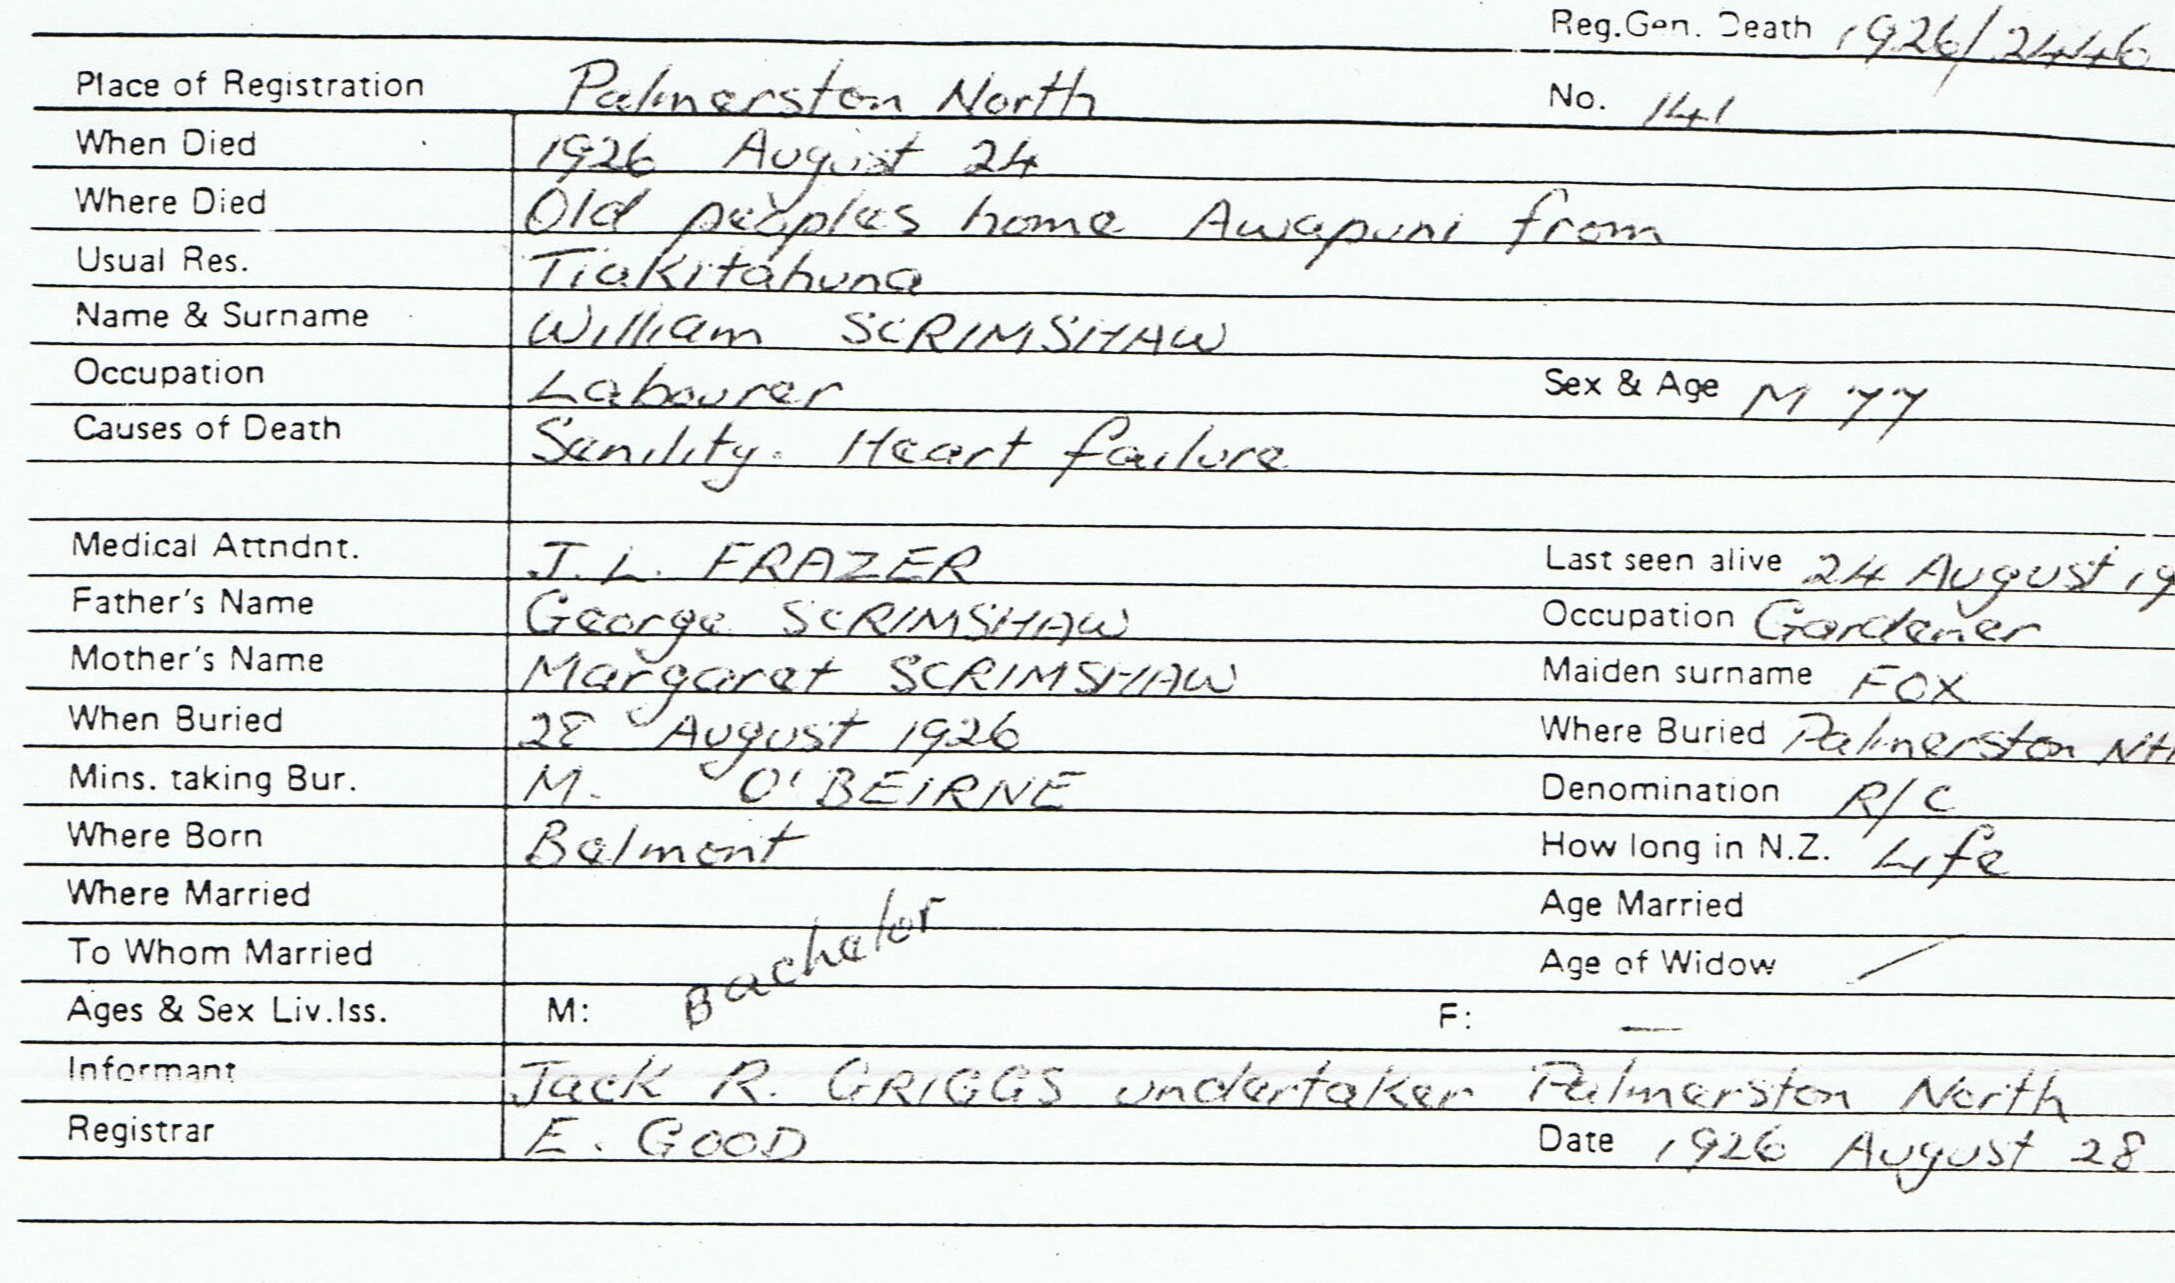 Reg.Gen. Death 1926/2446
Place of Registration Palmerston North No. 141
When Died 1926 August 24
Where Died Old peoples home Awapuni from
Usual Res. Tiakitahuna
Name & Surname William SCRIMSHAW
Occupation Labourer Sex & Age M 77
Causes of Death Senility. Heart failure
Medical Attndnt. J.L. FRAZER Last seen alive 24 August 19
Father's Name George SCRIMSHAW Occupation Gardener
Mother's Name Margaret SCRIMSHAW Maiden surname FOX
When Buried 28 August 1926 Where Buried Palmerston Nth
Mins. taking Bur. M. O'BEIRNE Denomination R/C
Where Born Belmont How long in N.Z. Life
Where Married Age Married
To Whom Married Bachelor Age of Widow /
Ages & Sex Liv.Iss. M: F: —
Informant Jack R. GRIGGS undertaker Palmerston North
Registrar E. GOOD Date 1926 August 28